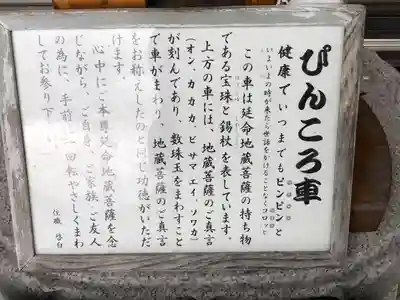 ぴんころ車
健康でいつまでもピンピンと
いよいよの時が来たら世話をかけることなくコロッと
この車は延命地蔵菩薩の持ち物
である宝珠と錫杖を表しています。
上方の車には、地蔵菩薩のご真言
(オン、カカカ、ビサマエイ、ソワカ)
が刻んであり、数珠玉をまわすこと
で車がまわり、地蔵菩薩のご真言
をお称えしたのと同じ功徳がいただ
けます。
心中にご本尊延命地蔵菩薩を念
じながら、ご自身、ご家族、ご友人
の為に、手前に一回転やさしくまわ
してお参り下さい。
住職 啓白